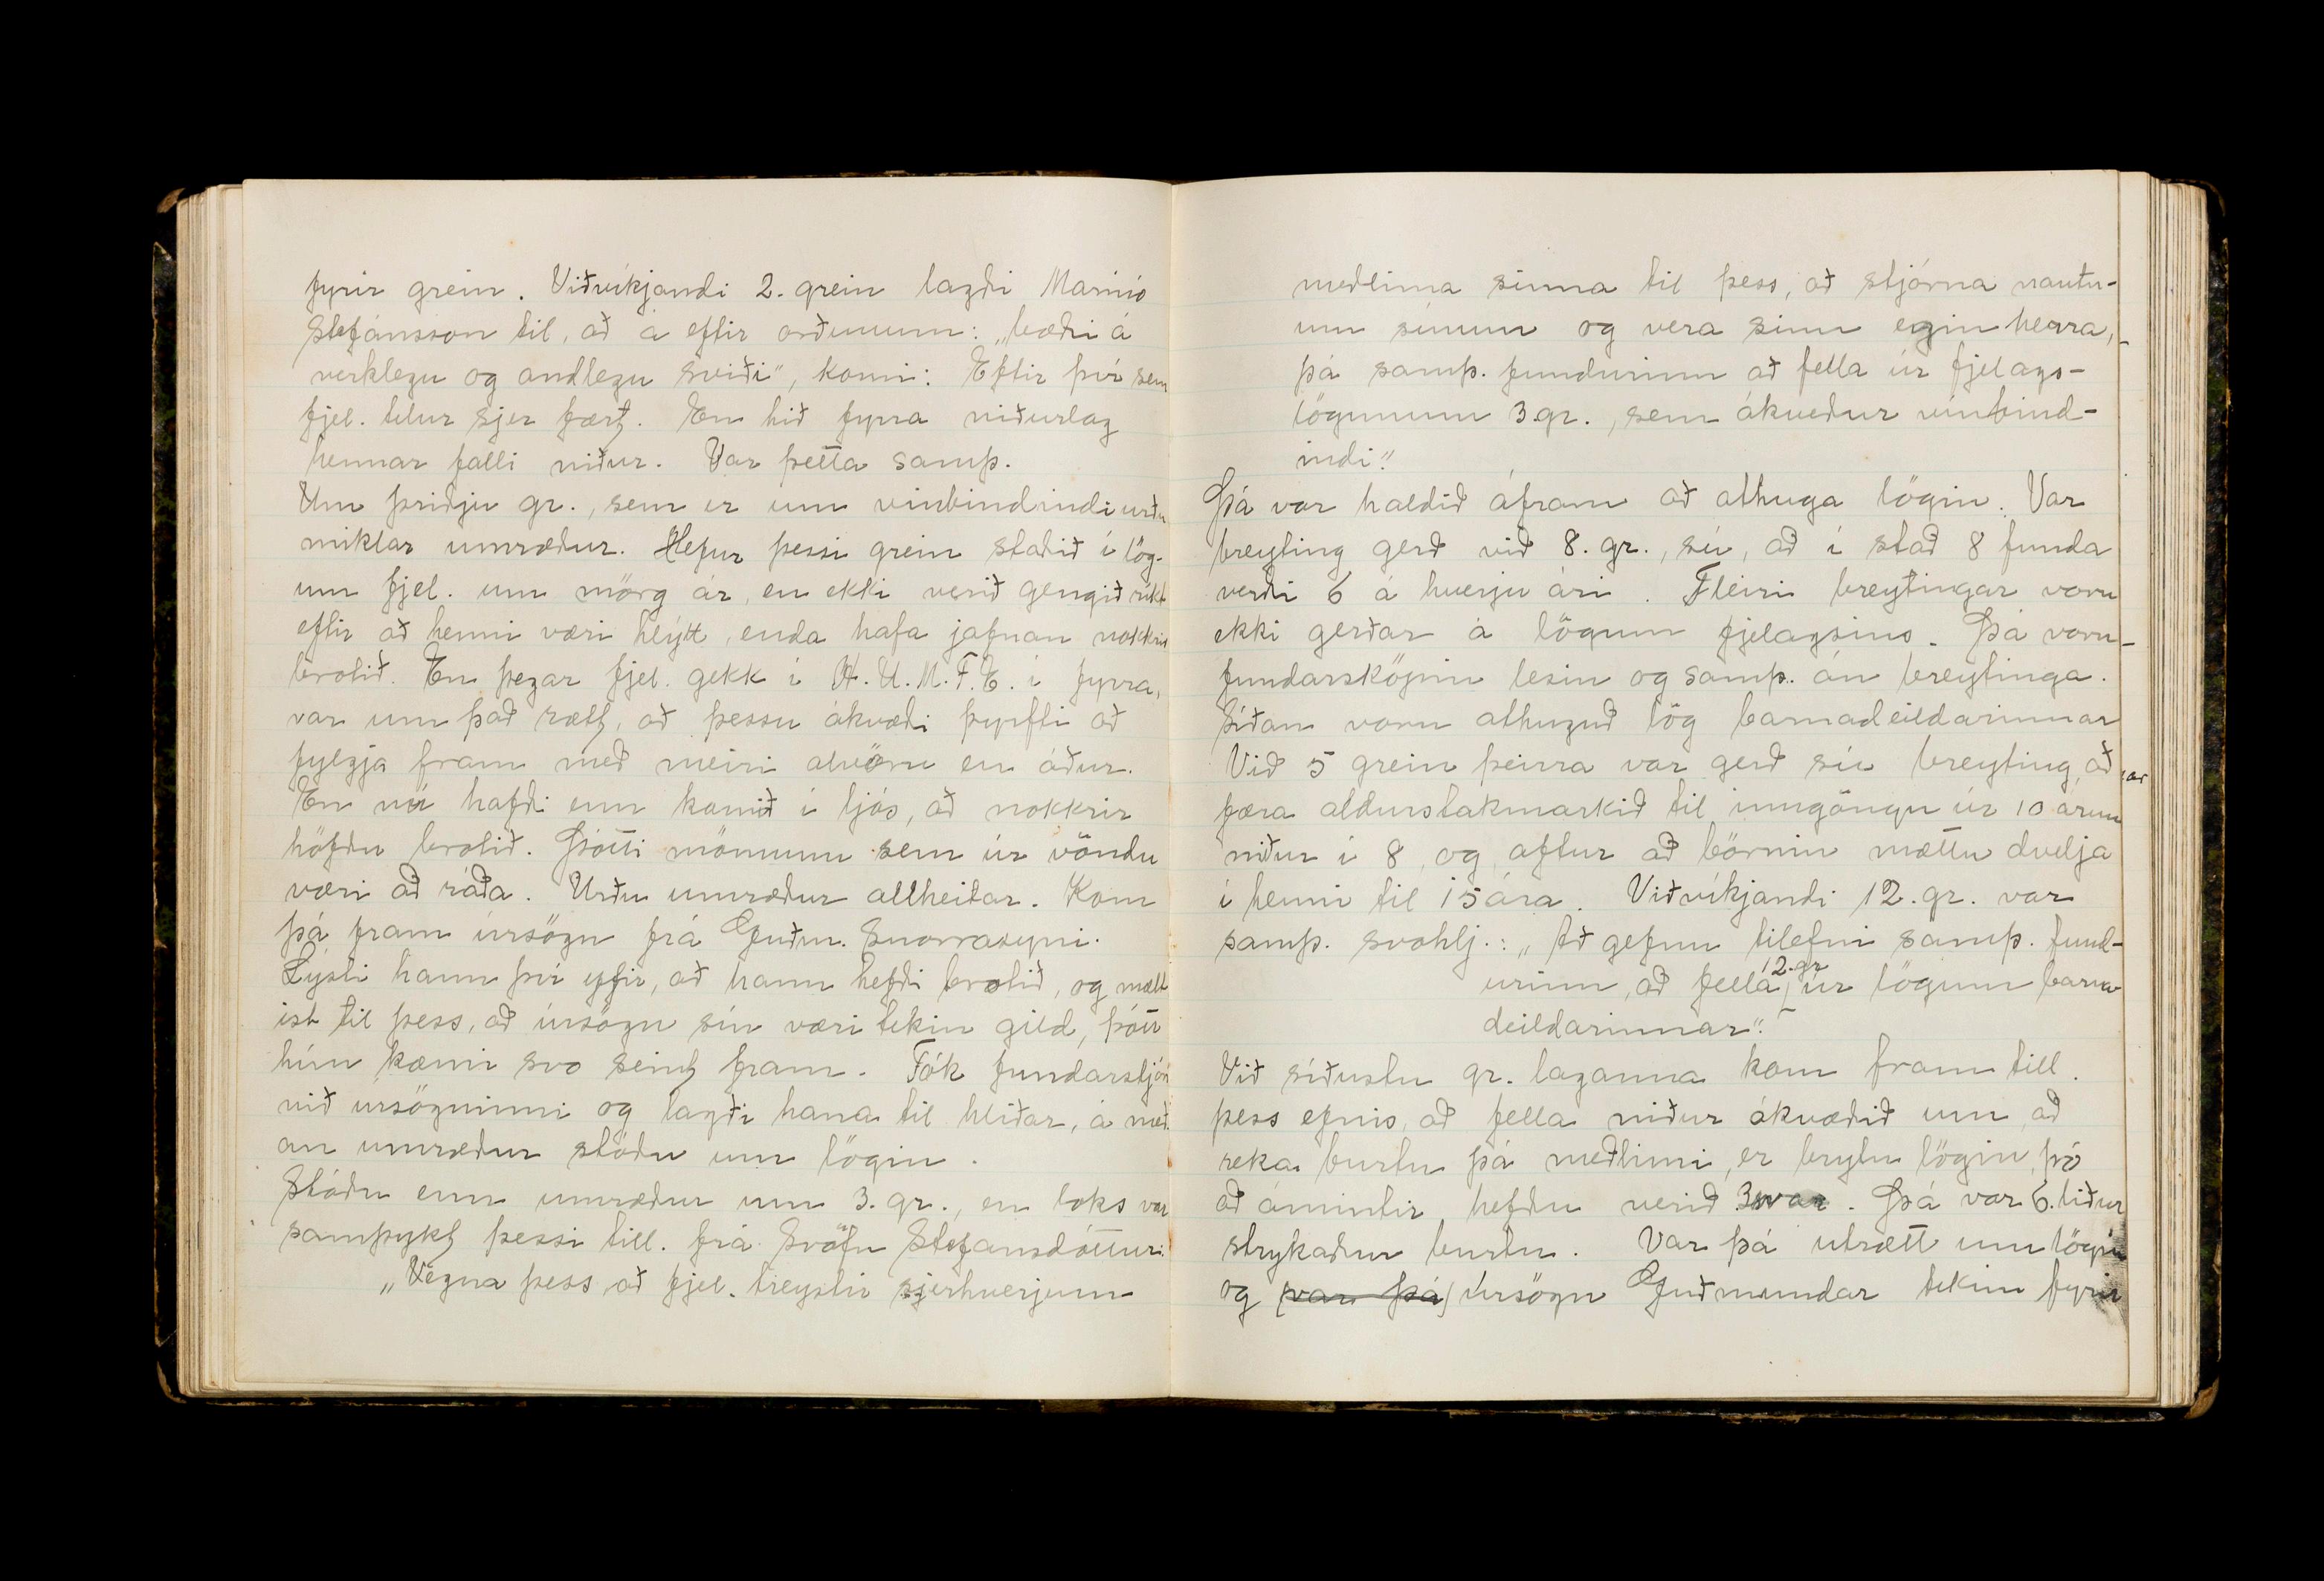 fyrir grein. Viðvíkjandi 2. grein lagði Marinó
Stefánsson til, að á eftir orðunum: „bæði á
verklegu og andlegu sviði“, komi: Eftir því sem
fjel. telur sjer fært. En hið fyrra niðurlag
hennar falli niður. Var þetta samþ.
Um þriðju gr., sem er um vínbindindi urðu
miklar umræður. Hefur þessi grein staðið í lög-
um fjel. um mörg ár, en ekki verið gengið ríkt
eftir að henni væri hlýtt, enda hafa jafnan nokkrir
brotið. En þegar fjel. gekk í H.U.M.F.E. í fyrra,
var um það rætt, að þessu ákvæði þyrfti að
fylgja fram með meiri alvöru en áður.
En nú hafði enn komið í ljós, að nokkrir
höfðu brotið. Þótti mönnum sem úr vöndu
væri að ráða. Urðu umræður allheitar. Kom
þá fram úrsögn frá Guðm. Snorrasyni.
Lýsti hann því yfir, að hann hefði brotið, og mælt
ist til þess, að úrsögn sín væri tekin gild, þótt
hún kæmi svo seint fram. Tók fundarstjóri
við úrsögninni og lagði hana til hliðar, á með
an umræður stóðu um lögin.
Stóðu enn umræður um 3. gr., en loks var
samþykt þessi till. frá Svöfu Stefansdóttur:
„Vegna þess að fjel. treystir sjerhverjum
meðlima sinna til þess, að stjórna nautn-
um sínum og vera sinn eigin herra,
þá samþ. fundurinn að fella úr fjelags-
lögunum 3 gr., sem ákveður vínbind-
indi.“
Þá var haldið áfram að athuga lögin. Var
breyting gerð við 8. gr., sú, að í stað 8 funda
verði 6 á hverju ári. Fleiri breytingar voru
ekki gerðar á lögum fjelagsins. Þá voru
fundarsköpin lesin og samþ. án breytinga.
Síðan voru athuguð lög barnadeildarinnar
Við 5 grein þeirra var gerð sú breyting, að
færa aldurstakmarkið til inngöngu úr 10 árum
niður í 8, og aftur að börnin mættu dvelja
í henni til 15 ára. Viðvíkjandi 12. gr. var
samþ. svohlj.: „Að gefnu tilefni samþ. fund-
urinn, að fella 12. gr úr lögum barna
deildarinnar“.
Við síðustu gr. laganna kom fram till.
þess efnis, að fella niður ákvæðið um að
reka burtu þá meðlimi, er brytu lögin, þó
að ámintir hefðu verið 3svar. Þá var 6. liður
strykaður burtu. Var þá útrætt um lögin
og (var þá) úrsögn Guðmundar tekin fyrir